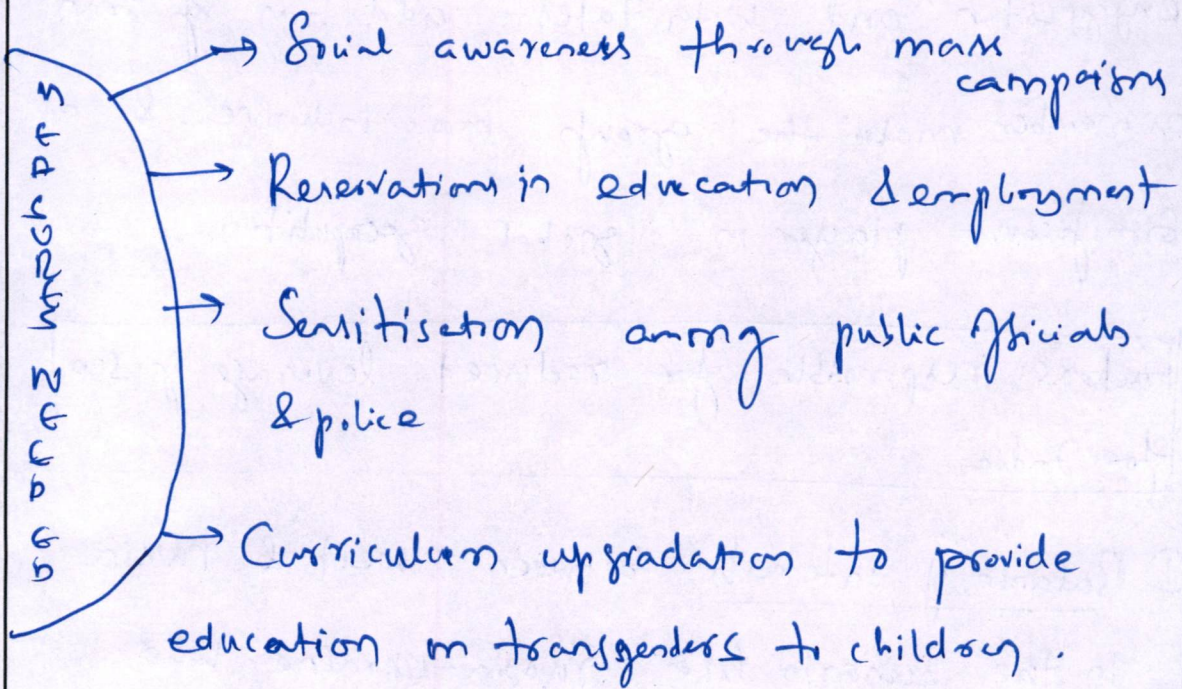 → Social awareness through mass
campaigns
→ Reservations in education & employment
NEEDED
→ Sensitisation among public officials
& police
→ Curriculum upgradation to provide
education on transgenders to children.